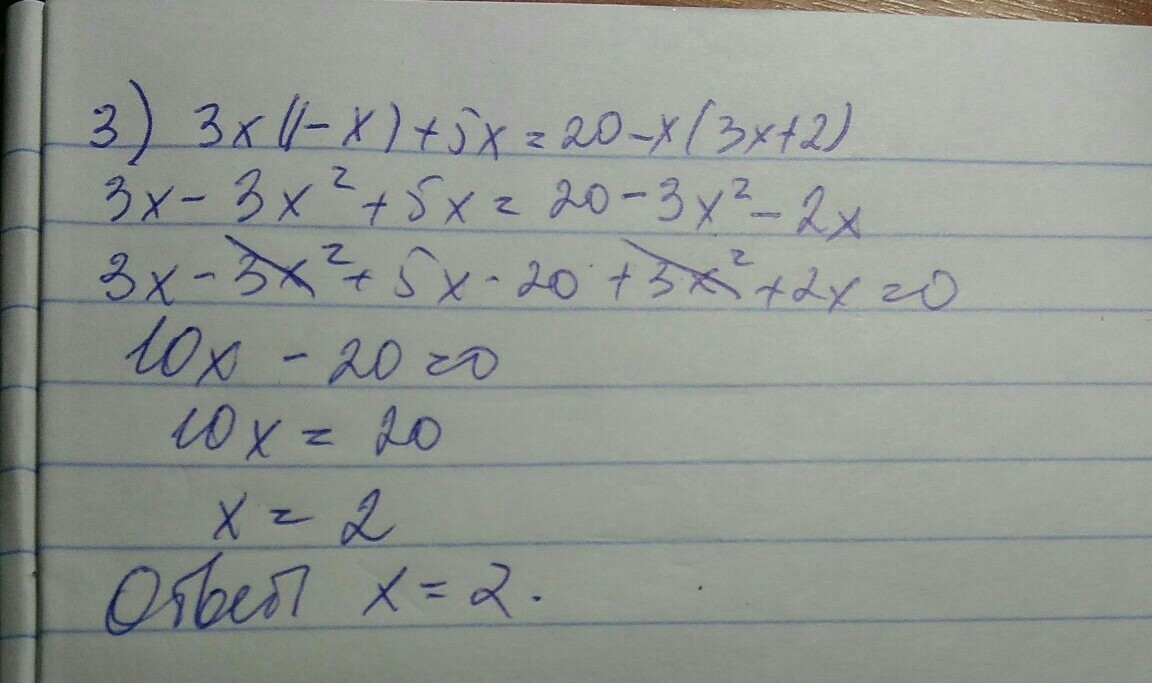 3) 3x(1-x)+5x=20-x(3x+2)
3x-3x²+5x=20-3x²-2x
3x-3x²+5x-20+3x²+2x=0
10x-20=0
10x=20
x=2
Ответ x=2.